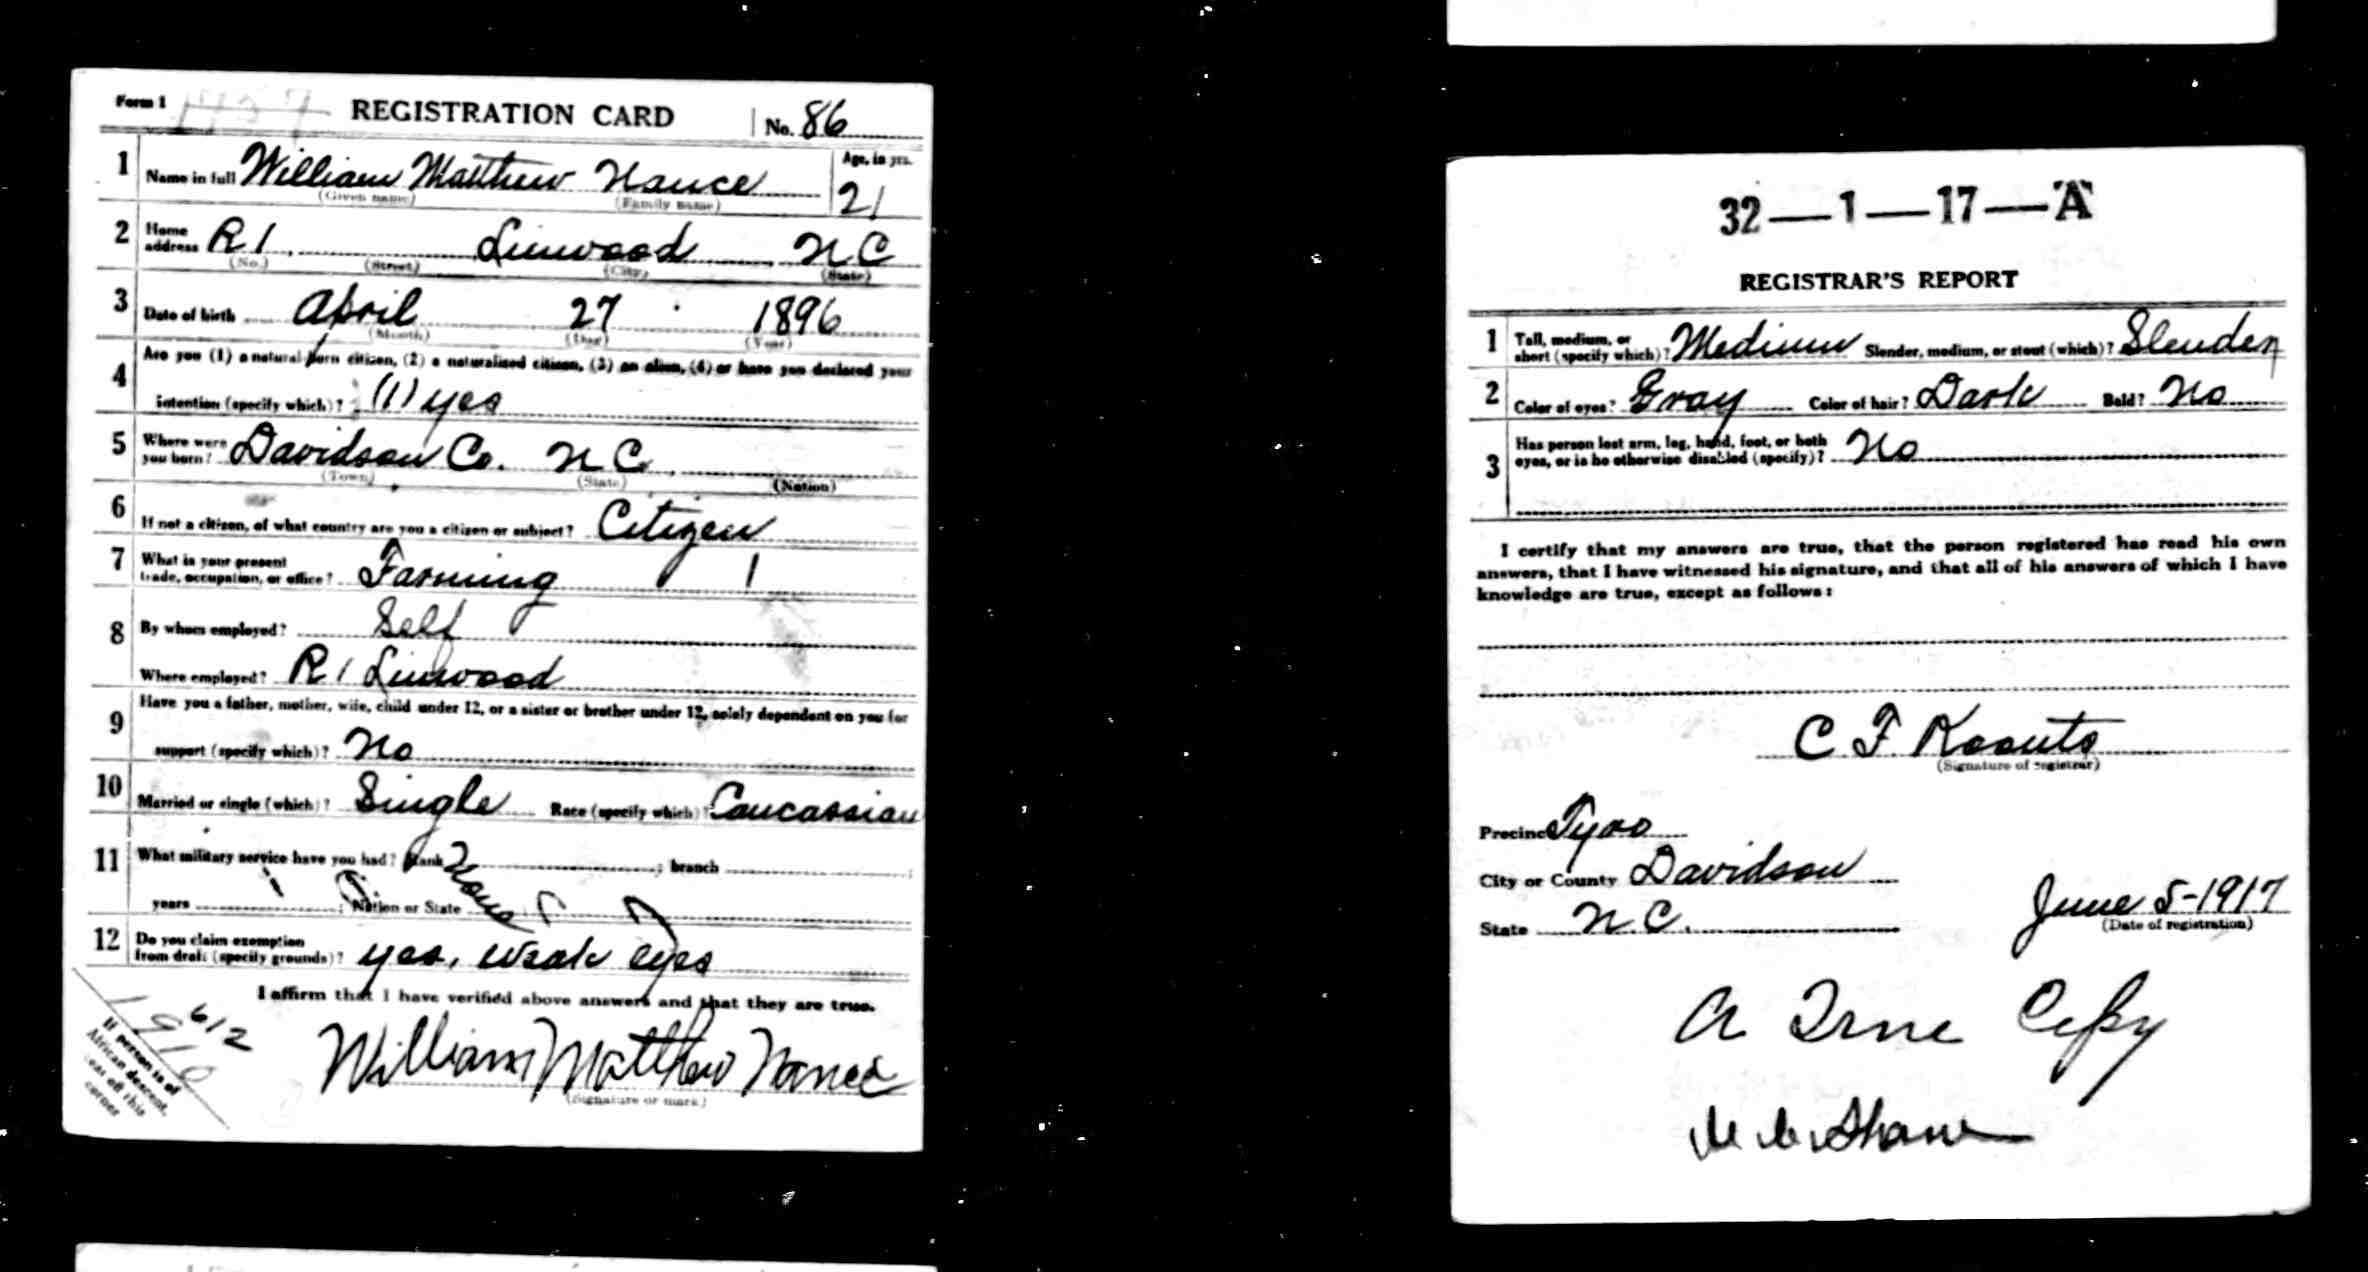 Form 1 REGISTRATION CARD No. 86
1 Name in full William Matthew Nance Age, in yrs. 21
(Given name) (Family name)
2 Home address R 1, Linwood NC
(No.) (Street) (City) (State)
3 Date of birth April 27 1896
(Month) (Day) (Year)
4 Are you (1) a natural-born citizen, (2) a naturalized citizen, (3) an alien, (4) or have you declared your
intention (specify which)? (1) yes
5 Where were you born? Davidson Co. N C.
(Town) (State) (Nation)
6 If not a citizen, of what country are you a citizen or subject? Citizen
7 What is your present trade, occupation, or office? Farming 1
8 By whom employed? Self
Where employed? R 1 Linwood
9 Have you a father, mother, wife, child under 12, or a sister or brother under 12, solely dependent on you for
support (specify which)? No
10 Married or single (which)? Single Race (specify which)? Caucassian
11 What military service have you had? Rank None ; branch ;
years ; Nation or State
12 Do you claim exemption from draft (specify grounds)? yes, weak eyes
I affirm that I have verified above answers and that they are true.
William Matthew Nance
(Signature or mark)
612
If person is of
African descent,
corner
32—1—17—A
REGISTRAR'S REPORT
1 Tall, medium, or short (specify which)? Medium Slender, medium, or stout (which)? Slender
2 Color of eyes? Gray Color of hair? Dark Bald? No
3 Has person lost arm, leg, hand, foot, or both eyes, or is he otherwise disabled (specify)? No
I certify that my answers are true, that the person registered has read his own
answers, that I have witnessed his signature, and that all of his answers of which I have
knowledge are true, except as follows:
C F Koonts
(Signature of registrar)
Precinct Tyro
City or County Davidson
State N.C. June 5-1917
(Date of registration)
A True Copy